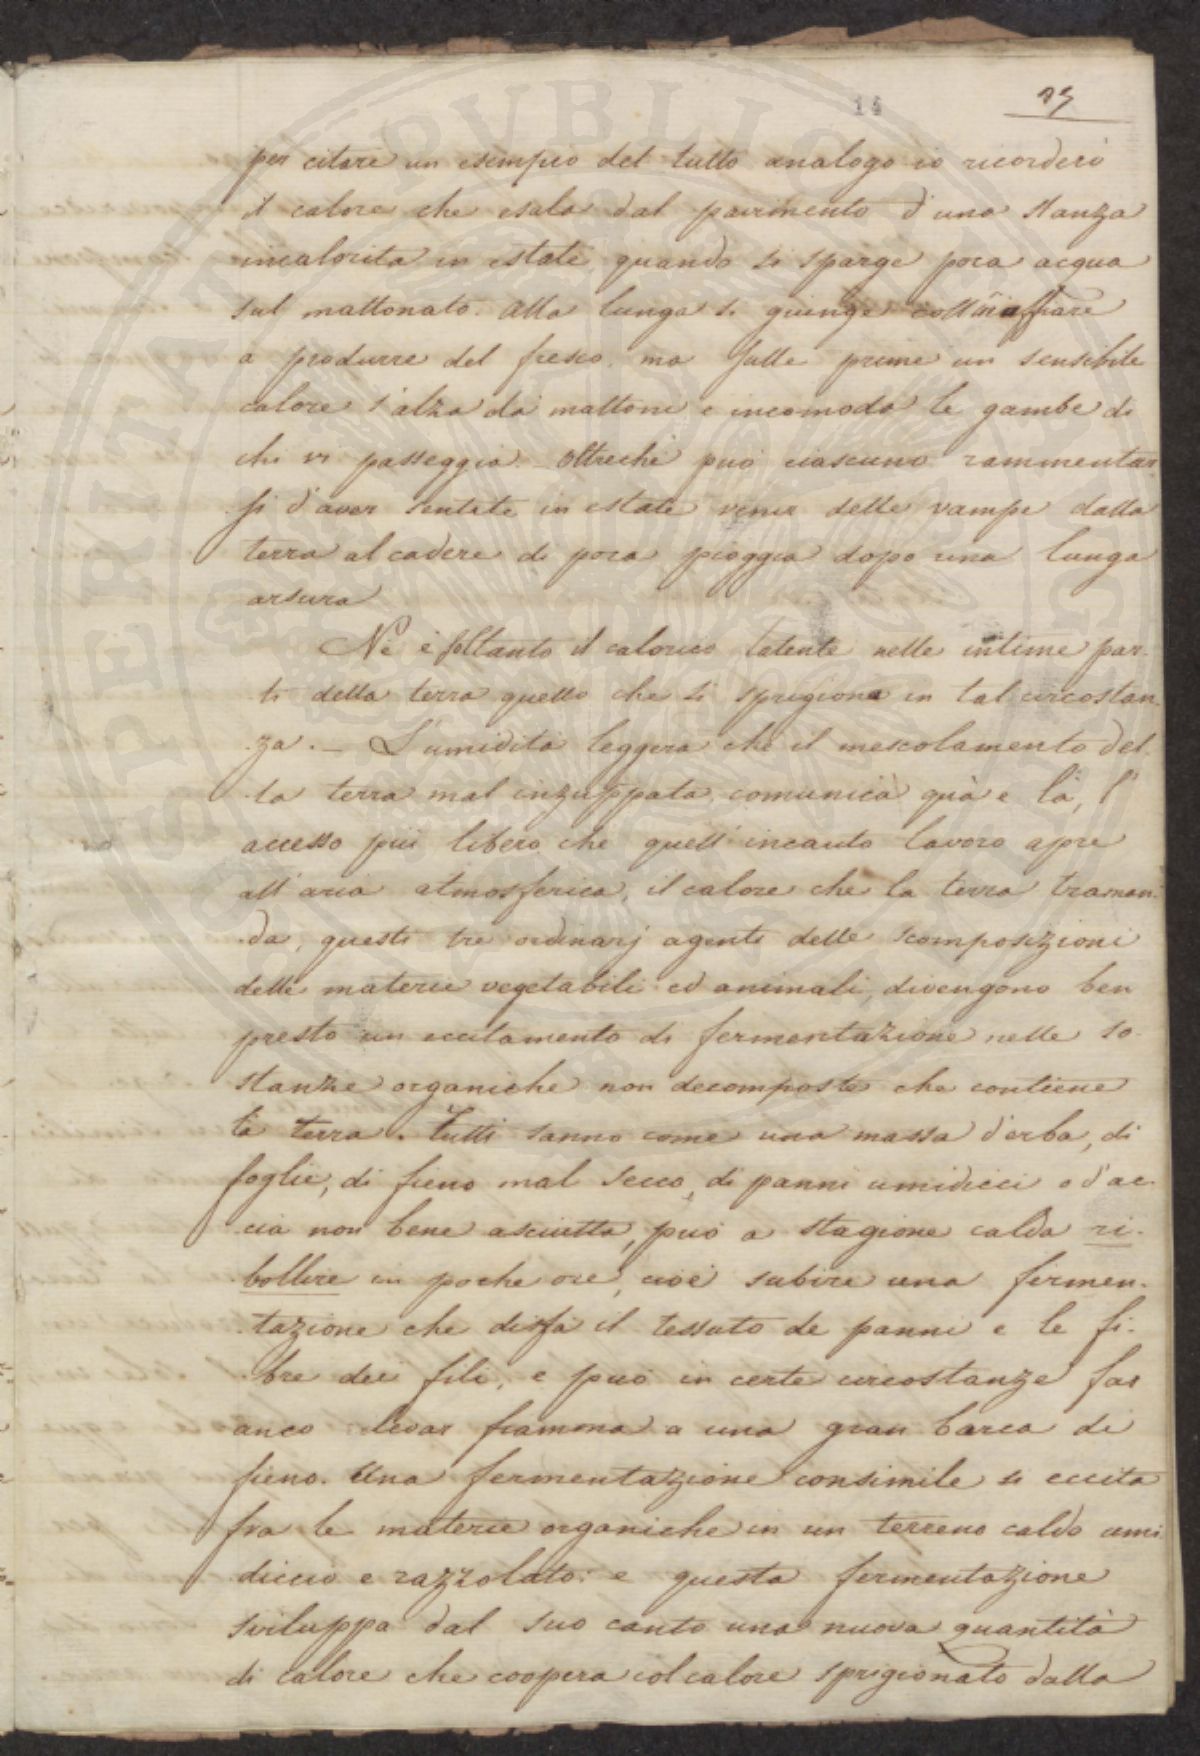 14
per citare un esempio del tutto analogo io ricorderò
il calore che esala dal pavimento d'una stanza
incalorita in estate, quando si sparge poca acqua
sul mattonato. Alla lunga si giunge coll'annaffiare
a produrre del fresco, ma sulle prime un sensibile
calore s'alza da' mattoni e incomoda le gambe di
chi vi passeggia. Oltrechè può ciascuno rammentar-
si d'aver sentite in estate venir delle vampe dalla
terra al cadere di poca pioggia dopo una lunga
arsura
Nè è soltanto il calorico latente nelle intime par-
ti della terra quello che si sprigiona in tal circostan-
za. _ L'umidità leggera che il mescolamento del-
la terra mal inzuppata, comunica quà e là, l'
accesso più libero che quell'incauto lavoro apre
all'aria atmosferica, il calore che la terra traman-
da, questi tre ordinarj agenti delle scomposizioni
delle materie vegetabili ed animali, divengono ben
presto un eccitamento di fermentazione nelle so-
stanze organiche non decomposte che contiene
la terra. Tutti sanno come una massa d'erba, di
foglie, di fieno mal secco, di panni umidicci o d'ac-
cia non bene asciutta, può a stagione calda ri-
bollire in poche ore, cioè subire una fermen-
tazione che disfà il tessuto de panni e le fi-
bre dei fili, e può in certe circostanze far
anco levar fiamma a una gran barca di
fieno. Una fermentazione consimile si eccita
fra le materie organiche in un terreno caldo umi-
diccio e razzolato: e questa fermentazione
sviluppa dal suo canto una nuova quantità
di calore che coopera col calore sprigionato dalla